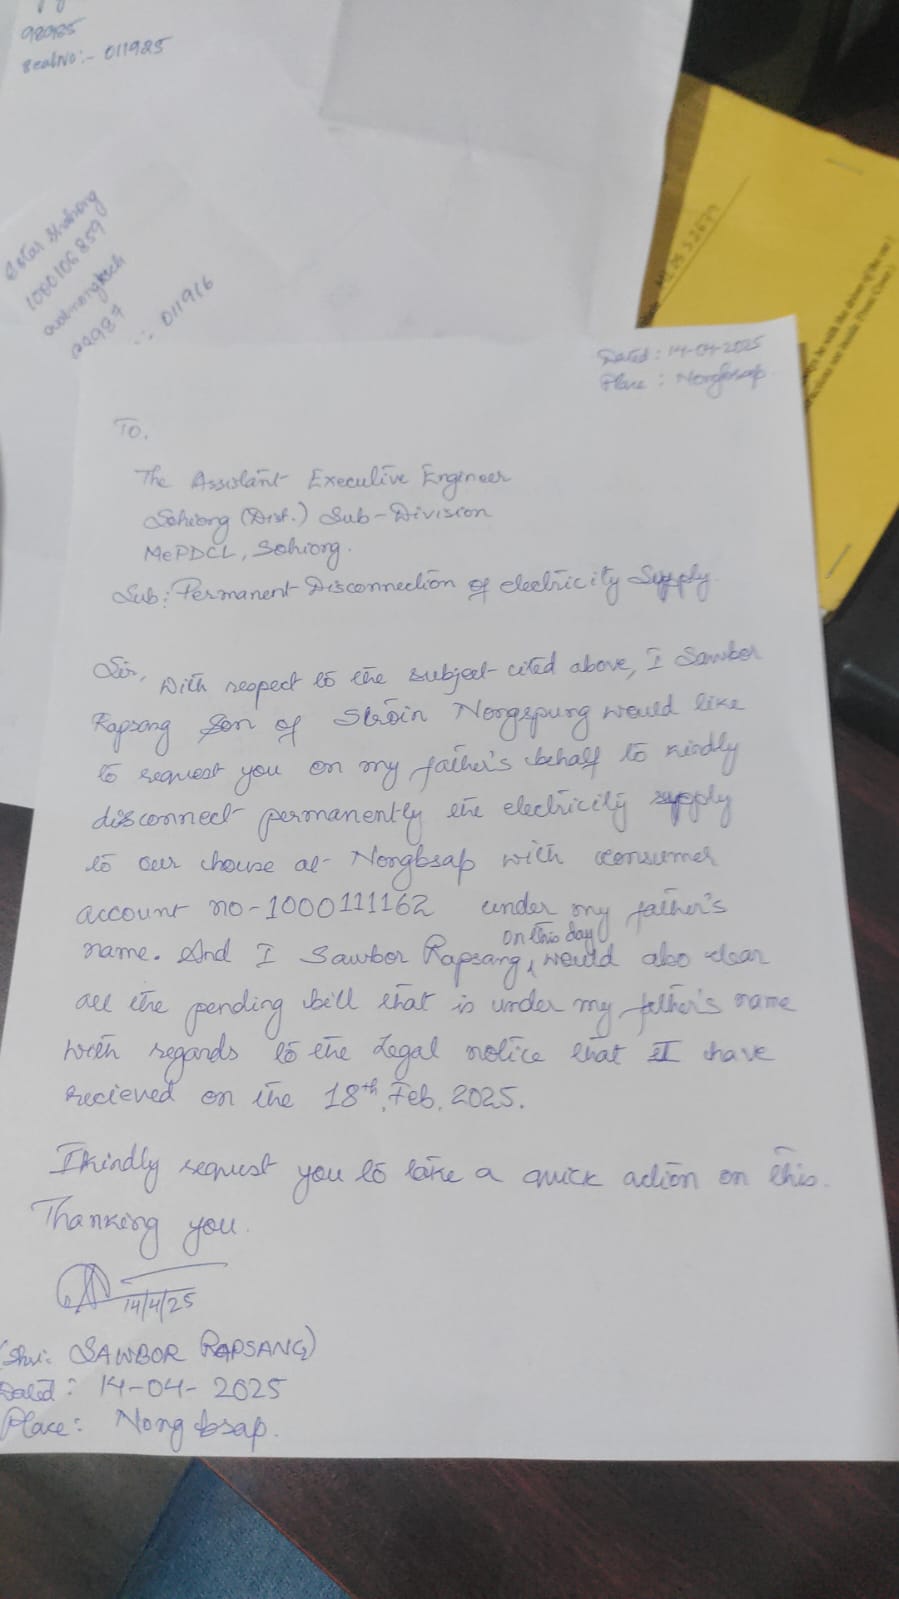 98985
SealNo:- 011985
1000106859
011916
Dated : 14-04-2025
Place : Nongbsap.
To,
The Assistant Executive Engineer
Sohiong (Dist.) Sub-Division
MePDCL, Sohiong.
Sub: Permanent Disconnection of electricity Supply
Sir, With respect to the subject cited above, I Sawbor
Rapsang Son of Skroin Nongspung would like
to request you on my father's behalf to kindly
disconnect permanently the electricity supply
to our house at Nongbsap with consumer
account no-1000111162 under my father's
on this day
name. And I Sawbor Rapsang, would also clear
all the pending bill that is under my father's name
with regards to the Legal notice that I have
recieved on the 18th, Feb, 2025.
I kindly request you to take a quick action on this.
Thanking you.
14/4/25
(Shri: SAWBOR RAPSANG)
Dated : 14-04-2025
Place: Nongbsap.